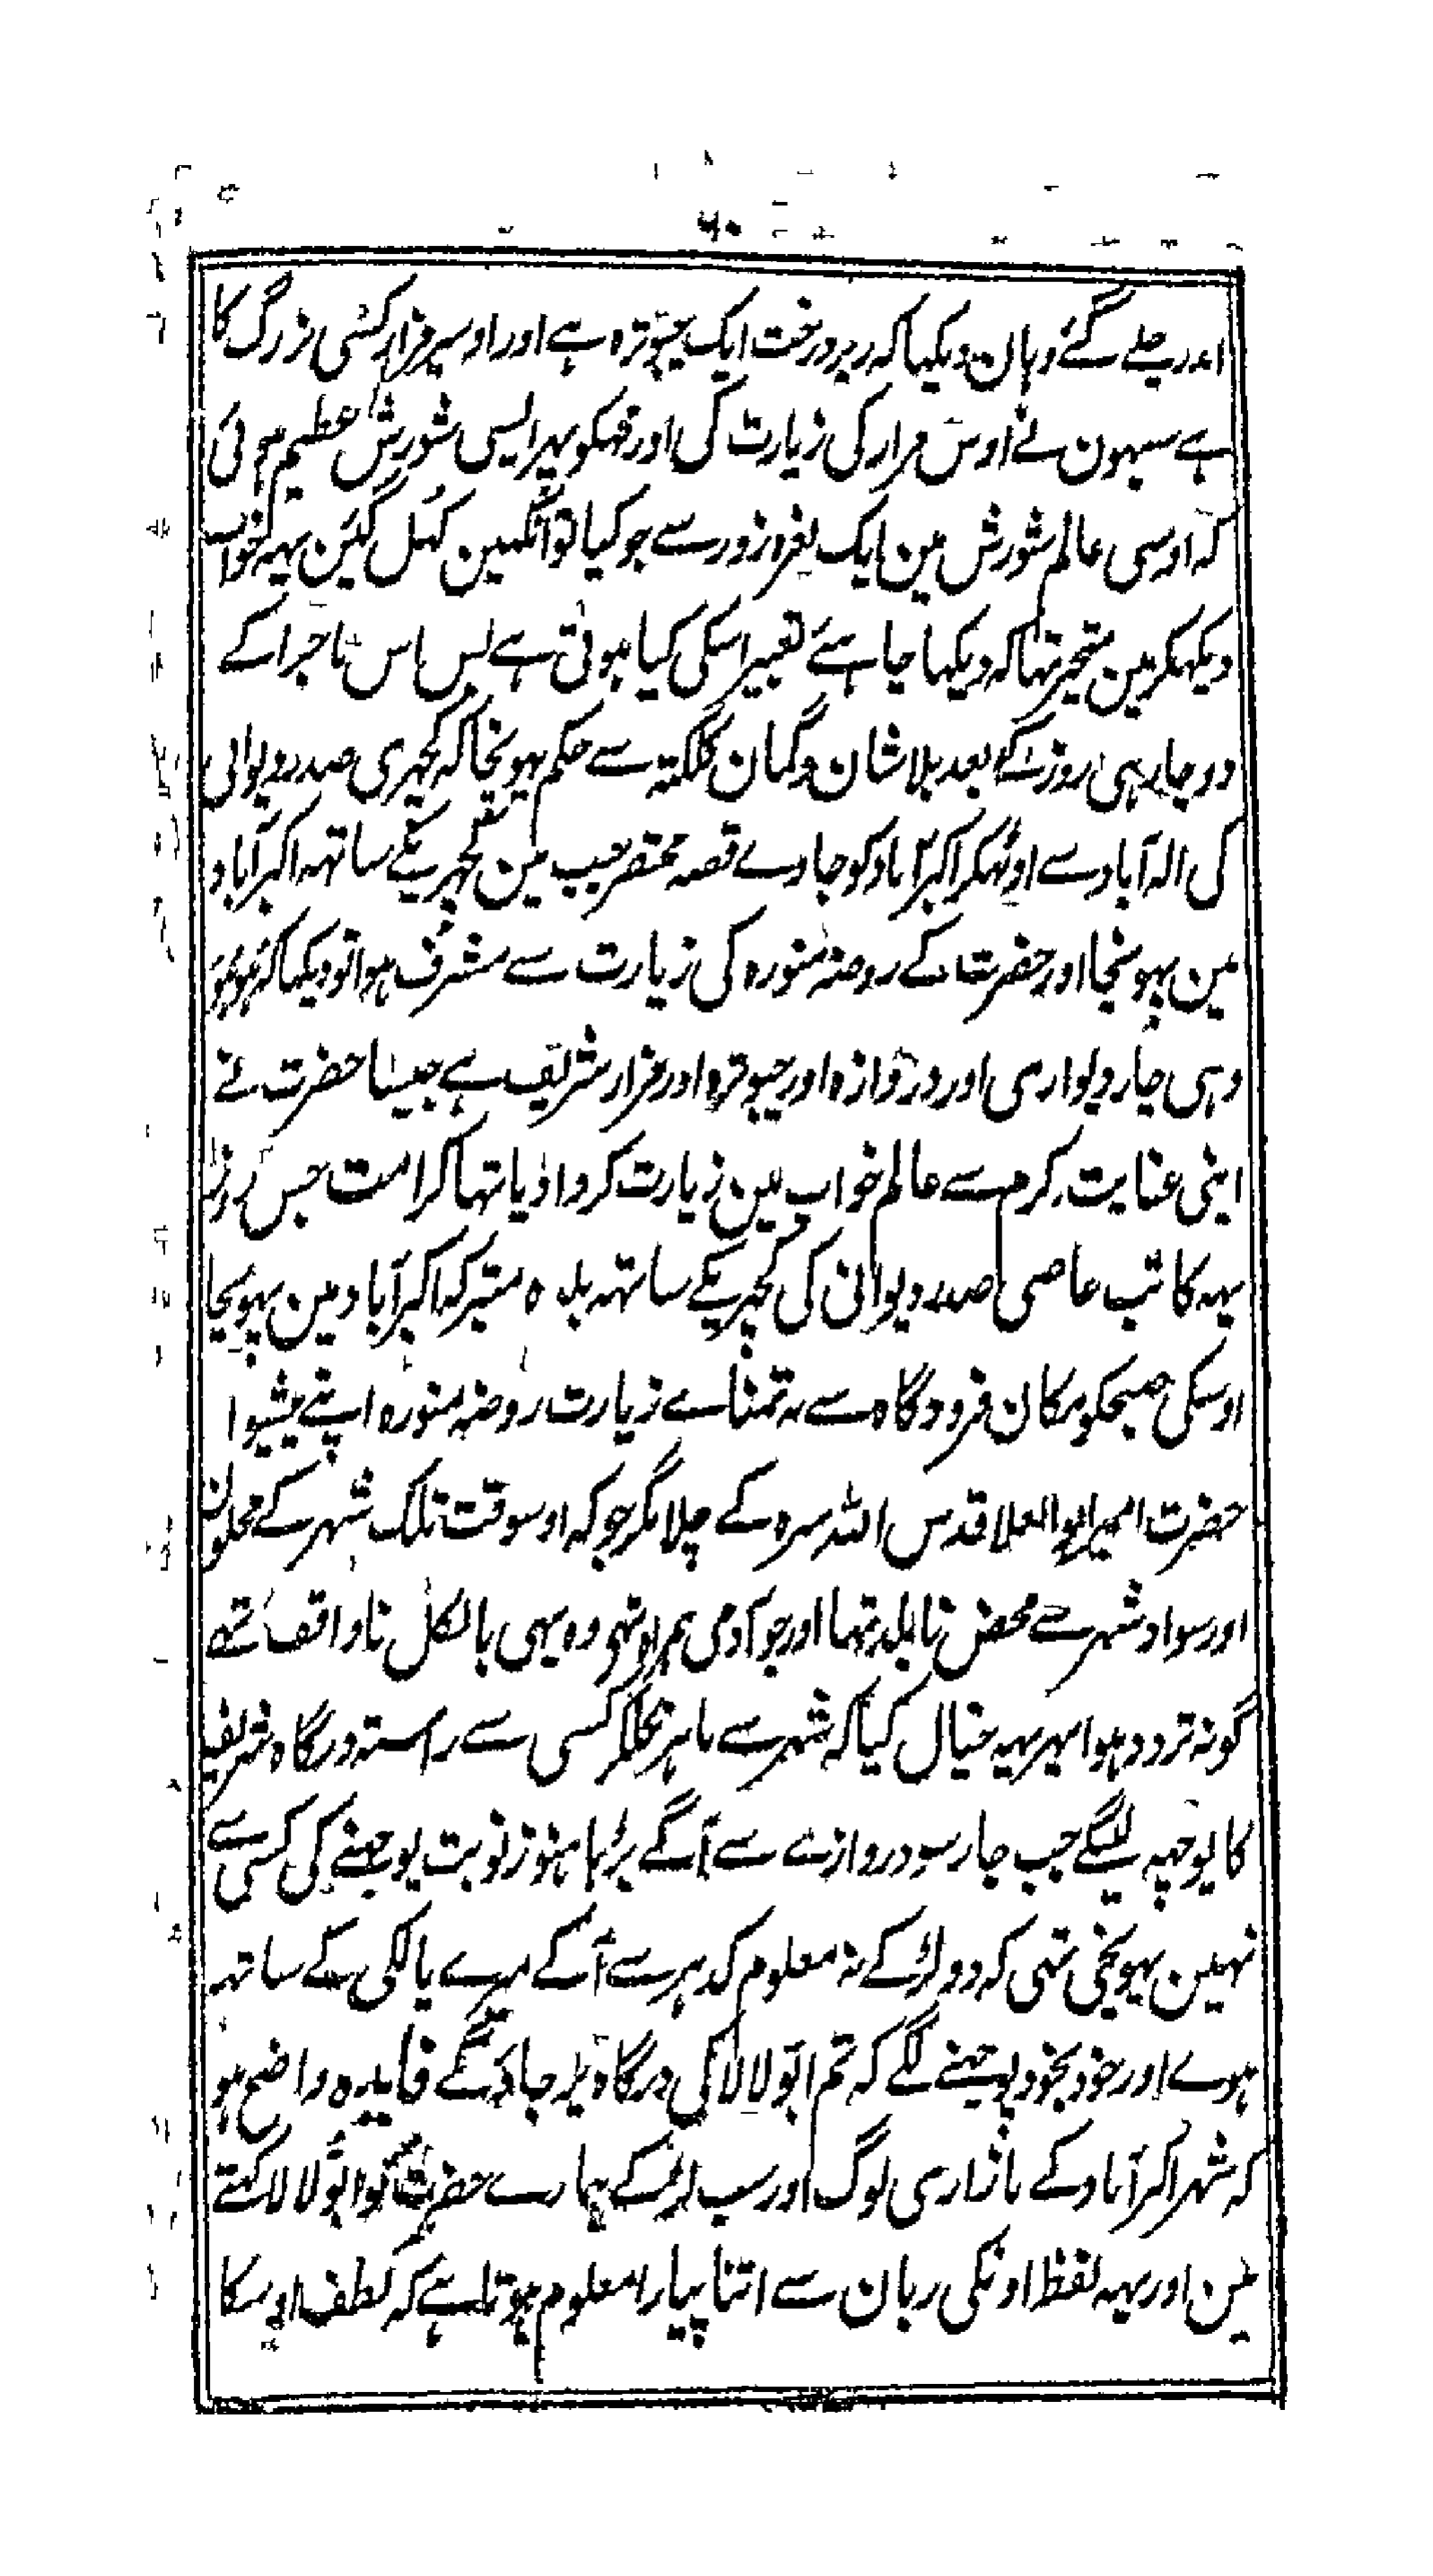 ۶۰
اندر چلے گئے وہان دیکہا کہ زیر درخت ایک چبوترہ ہے اور اوسپر مزار کسی بزرگ کا
ہے سبہون نے اوس مزار کی زیارت کی اور مجہکو پہر ایسی شورش عظیم ہوئی
کہ اوسی عالم شورش مین ایک نعرہ زور سے جو کیا تو انکہین کہل گئین یہہ خواب
دیکہکر مین متحیر تہا کہ دیکہا چاہئے تعبیر اسکی کیا ہوتی ہے پس اس ماجرا کے
دو چار ہی روز کے بعد بلا شان و گمان کلکتہ سے حکم پہونچا کہ کچہری صدر دیوانی
کی الہ آباد سے اوٹہکر اکبرآباد کو جاوے قصہ مختصر جب مین کچہریکے ساتہہ اکبرآباد
مین پہونچا اور حضرت کے روضہ منورہ کی زیارت سے مشرف ہوا تو دیکہا کہ ہوبہو
وہی چار دیواری اور دروازہ اور چبوترہ اور مزار شریف ہے جیسا حضرت نے
اپنی عنایت و کرم سے عالم خواب مین زیارت کروا دیا تہا کرامت جس روز
یہہ کاتب عاصی صدر دیوانی کی کچہریکے ساتہہ بلدہ متبرکہ اکبرآباد مین پہونچا
اوسکی صبحکو مکان فرودگاہ سے بہ تمناے زیارت روضہ منورہ اپنے پیشوا
حضرت امیر ابو العلا قدس اللہ سرہ کے چلا مگر جو کہ اوسوقت تلک شہر کے محلون
اور سواد شہر سے محض نابلد تہا اور جو آدمی ہمراہ تہی وہ بہی بالکل ناواقف تہے
گونہ تردد ہوا پہر یہہ خیال کیا کہ شہر سے باہر نکلکر کسی سے راستہ درگاہ شریف
کا پوچہہ لینگے جب چار سو دروازے سے آگے بڑہا ہنوز نوبت پوچہنے کی کسی سے
نہین پہونچی تہی کہ دو لڑکے نہ معلوم کدہر سے آکے میرے پالکی کے ساتہہ
ہوے اور خود بخود پوچہنے لگے کہ تم ابولالا کی درگاہ پر جاؤگے فایدہ واضح ہو
کہ شہر اکبرآباد کے بازاری لوگ اور سب لڑکے ہمارے حضرت کو ابولالا کہتے
ہین اور یہہ لفظ اونکی زبان سے اتنا پیارا معلوم ہوتا ہے کہ لطف اوسکا